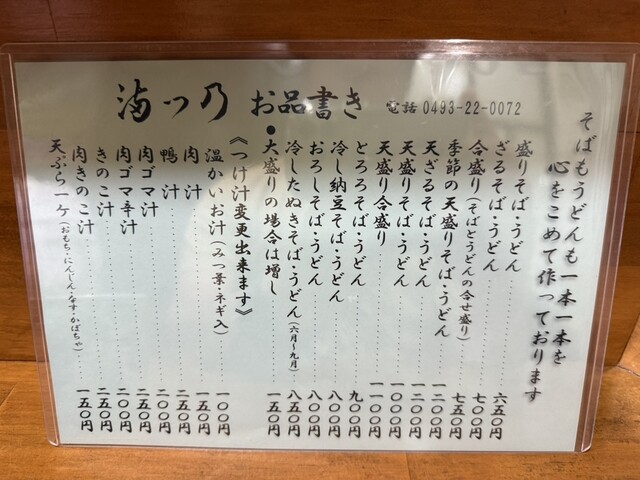 満つ乃 お品書き 電話 0493-22-0072
そばもうどんも一本一本を
心をこめて作っております
盛りそば・うどん 六五〇円
ざるそば・うどん 七〇〇円
合盛り(そばとうどんの合せ盛り) 七五〇円
季節の天盛りそば・うどん 一二〇〇円
天ざるそば・うどん 一二〇〇円
天盛りそば・うどん 一〇〇〇円
天盛り合盛り 一一〇〇円
とろろそば・うどん 九〇〇円
冷し納豆そば・うどん 八〇〇円
おろしそば・うどん 八〇〇円
冷したぬきそば・うどん(六月〜九月) 八五〇円
●大盛りの場合は増し 一五〇円
《つけ汁変更出来ます》
温かいお汁(みつ葉・ネギ入) 一〇〇円
肉汁 一五〇円
鴨汁 二五〇円
肉ゴマ汁 二五〇円
肉ゴマ辛汁 二〇〇円
きのこ汁 二五〇円
肉きのこ汁 二五〇円
天ぷら一ケ(おもち・にんじん・なす・かぼちゃ) 一五〇円